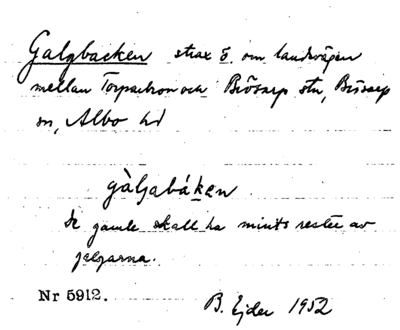 Galgbacken strax ö. om landsvägen
mellan Torpaskron och Brösarp stn, Brösarp
sn, Albo hd
gàljabáken
De gamle skall ha mints rester av
galgarna.
Nr 5912.
B. Ejder 1952